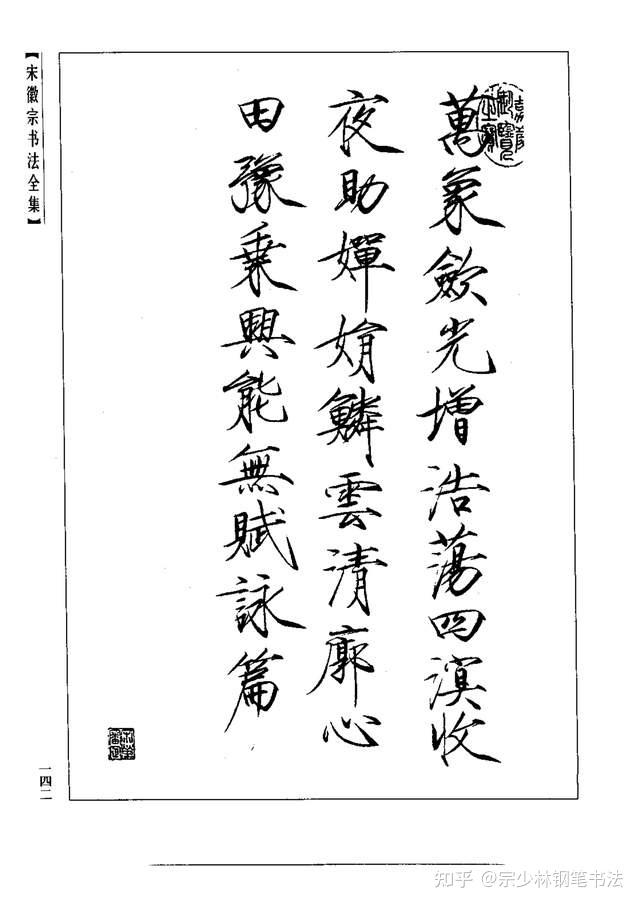 萬象歛光增浩蕩四溟收
夜助嬋娟鱗雲清廓心
田豫乘興能無賦詠篇
【宋徽宗书法全集】
一四二
知乎 @宗少林钢笔书法